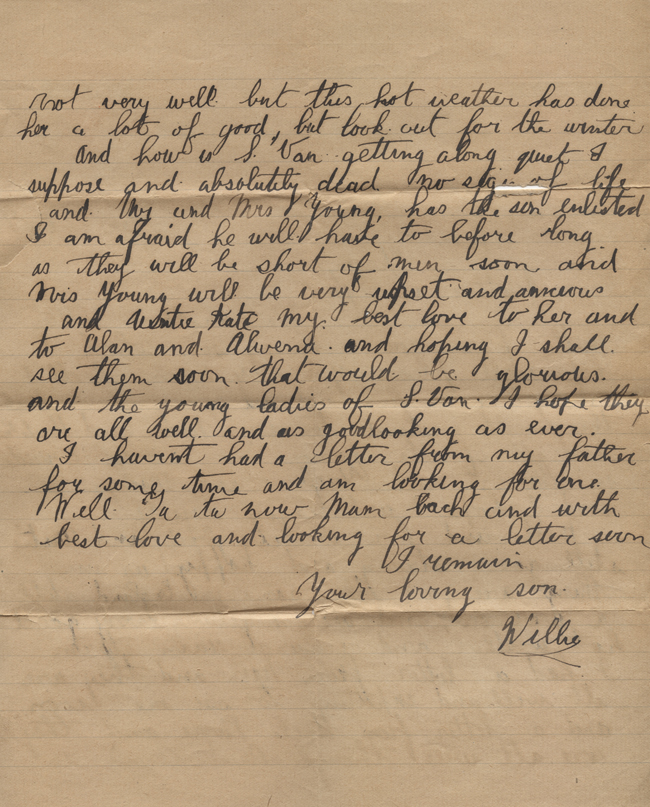 not very well. but this hot weather has done
her a lot of good, but look out for the winter
and how is S. Van getting along quiet I
suppose and absolutely dead no sign of life
and Mrs Young, has the son enlisted
I am afraid he will have to before long.
as they will be short of men soon and
Mrs Young will be very upset and anxious
and Auntie Kate my best love to her and
to Alan and Alwena. and hoping I shall
see them soon that would be glorious.
and the young ladies of S. Van. I hope they
are all well. and as goodlooking as ever.
I havent had a letter from my father
for some time and am looking for one.
Well Ta ta now Mam bach and with
best love and looking for a letter soon
I remain
Your loving son.
Willie